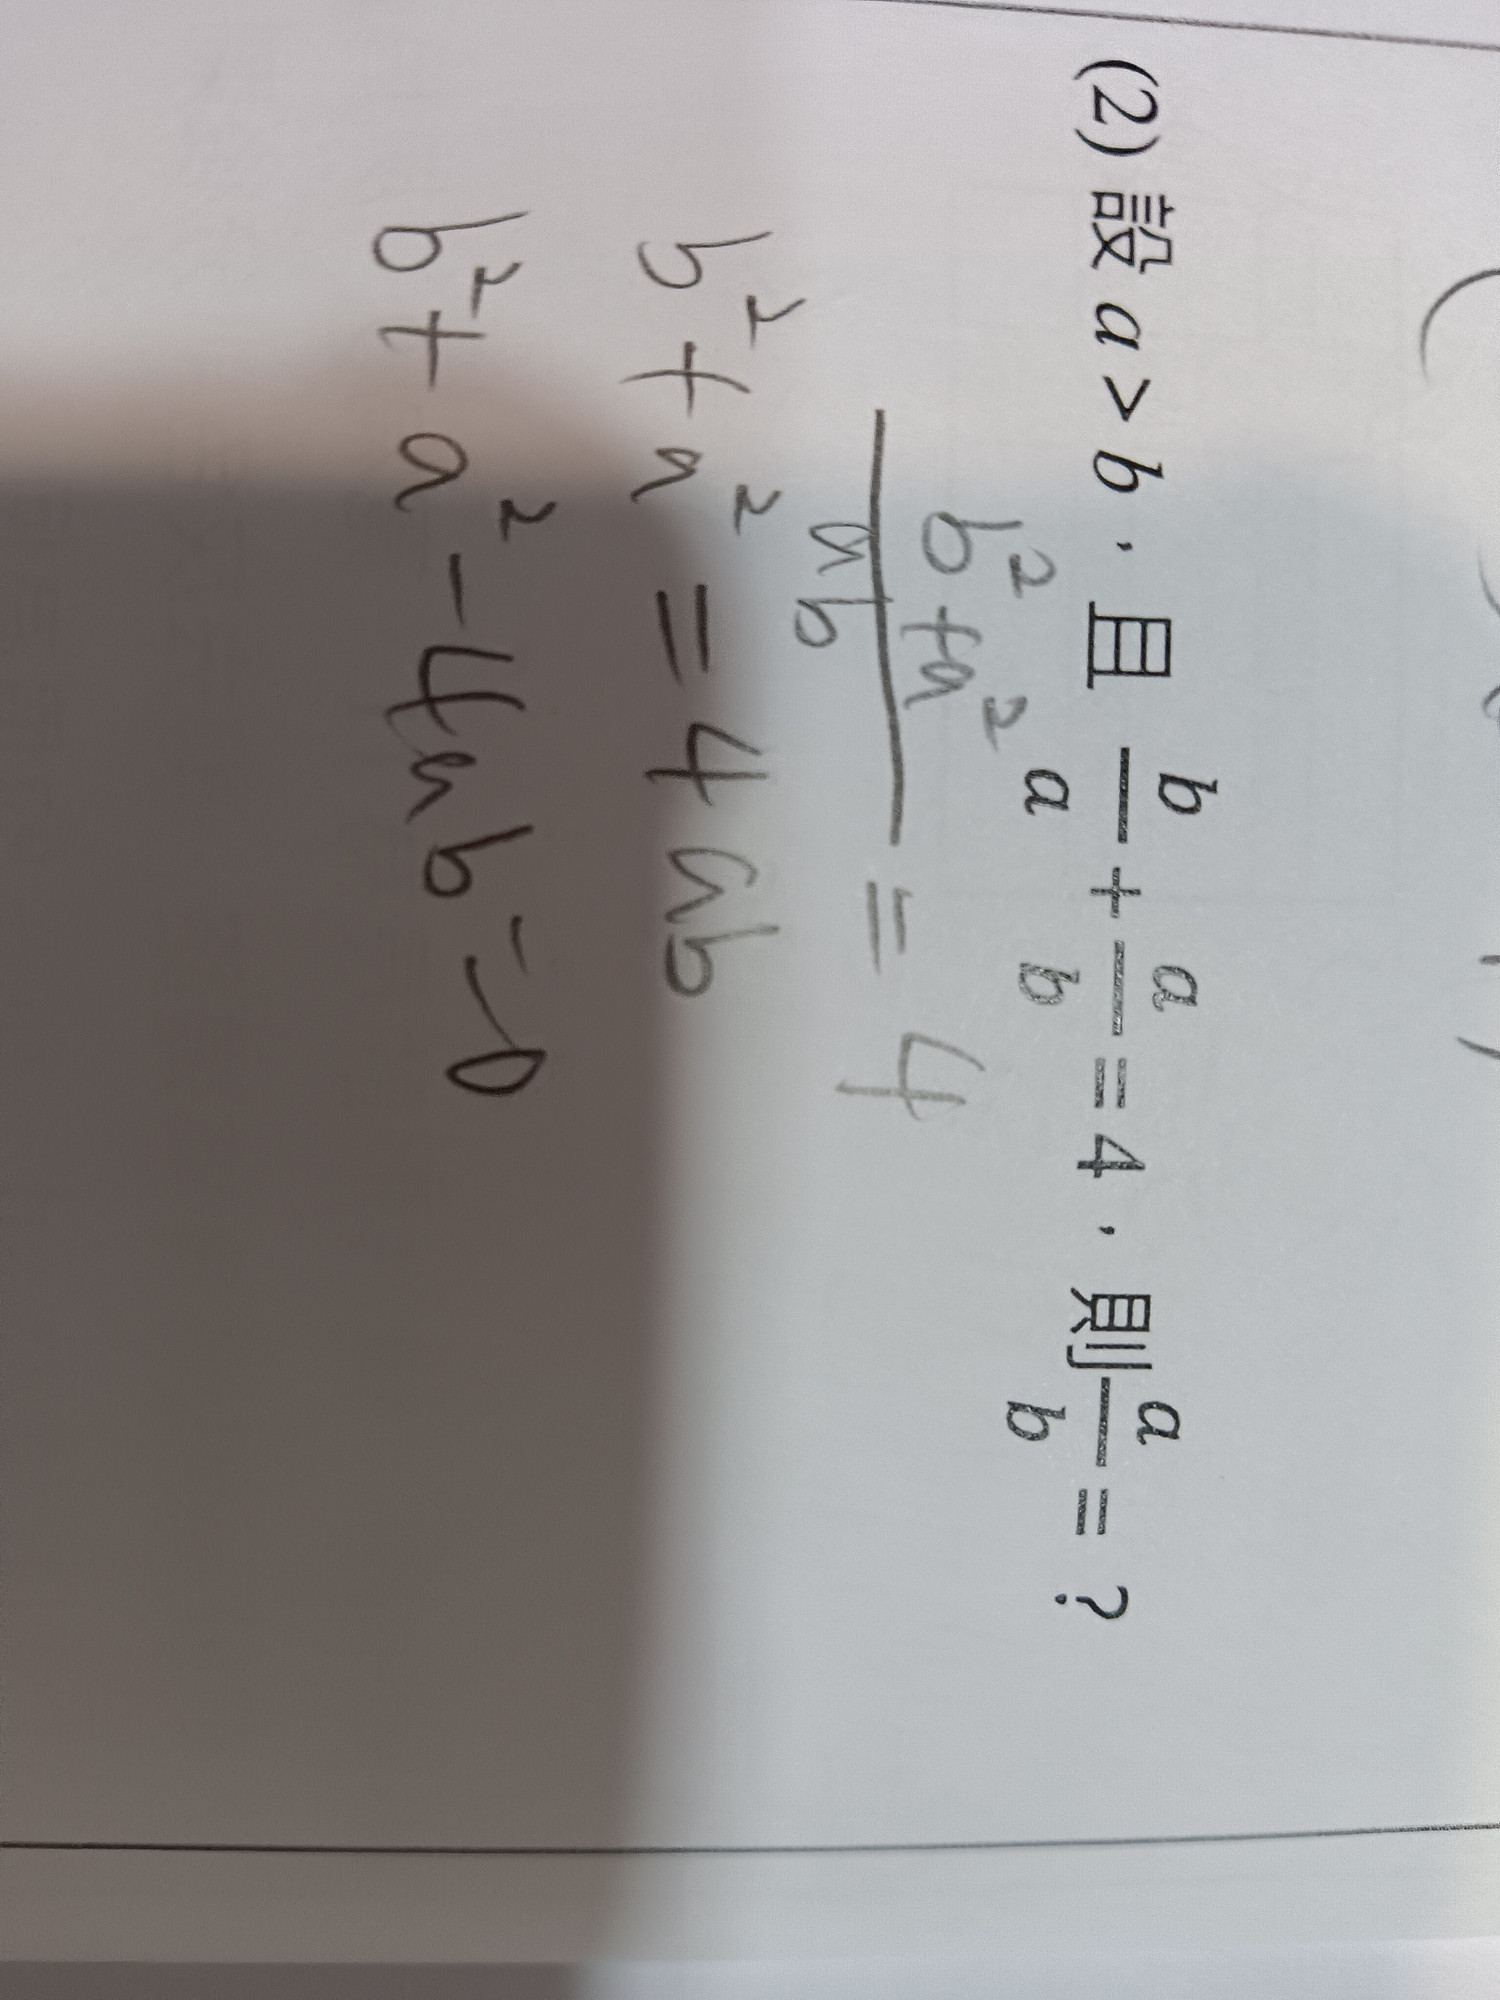 (2) 設 a > b，且 b/a + a/b = 4，則 a/b = ?
b² + a² / ab = 4
b² + a² = 4ab
b² + a² - 4ab = 0